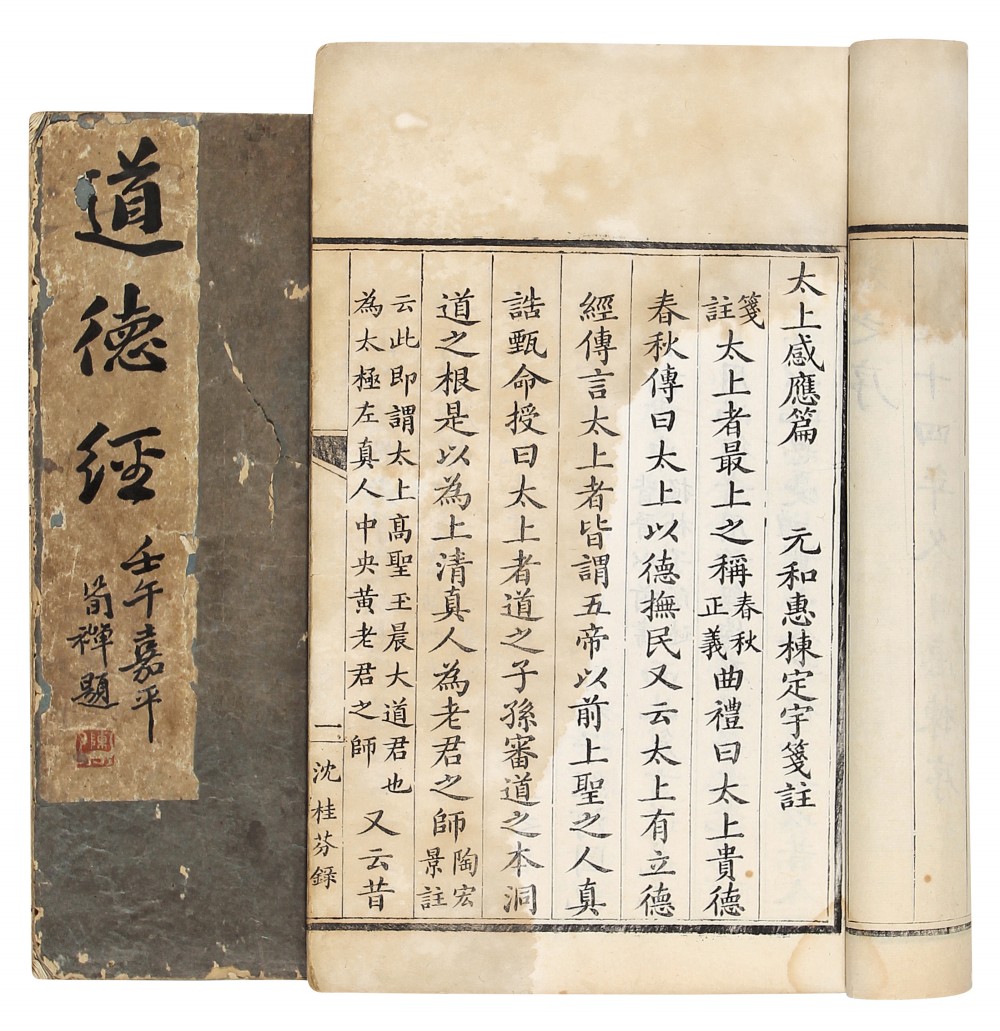 道德經
壬午嘉平
筍禪題
太上感應篇　元和惠棟定宇箋註
箋註太上者最上之稱春秋正義曲禮曰太上貴德
春秋傳曰太上以德撫民又云太上有立德
經傳言太上者皆謂五帝以前上聖之人真
誥甄命授曰太上者道之子孫審道之本洞
道之根是以為上清真人為老君之師陶宏景註
云此即謂太上高聖玉晨大道君也為太極左真人中央黃老君之師又云昔
一　沈桂芬録